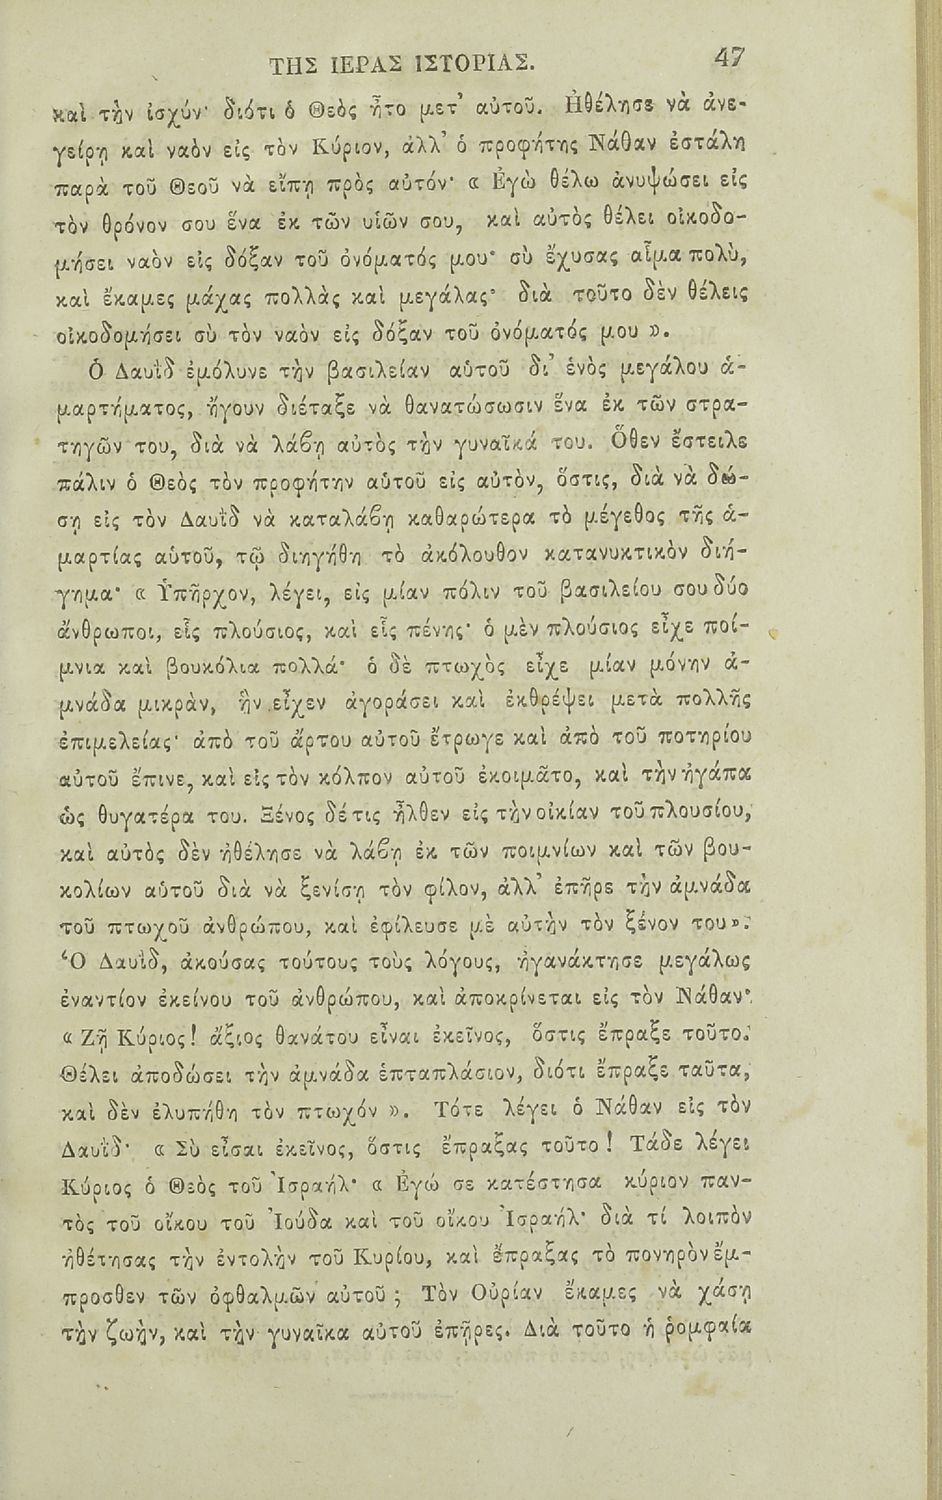 ΤΗΣ ΙΕΡΑΣ ΙΣΤΟΡΙΑΣ. 47
καὶ τὴν ἰσχύν· διότι ὁ Θεὸς ἦτο μετ᾽ αὐτοῦ. Ἠθέλησε νὰ ἀνε-
γείρῃ καὶ ναὸν εἰς τὸν Κύριον, ἀλλ᾽ ὁ προφήτης Νάθαν ἐστάλη
παρὰ τοῦ Θεοῦ νὰ εἴπῃ πρὸς αὐτόν· « Ἐγὼ θέλω ἀνυψώσει εἰς
τὸν θρόνον σου ἕνα ἐκ τῶν υἱῶν σου, καὶ αὐτὸς θέλει οἰκοδο-
μήσει ναὸν εἰς δόξαν τοῦ ὀνόματός μου· σὺ ἔχυσας αἷμα πολὺ,
καὶ ἔκαμες μάχας πολλὰς καὶ μεγάλας· διὰ τοῦτο δὲν θέλεις
οἰκοδομήσει σὺ τὸν ναὸν εἰς δόξαν τοῦ ὀνόματός μου ».
Ὁ Δαυῒδ ἐμόλυνε τὴν βασιλείαν αὑτοῦ δι᾽ ἑνὸς μεγάλου ἁ-
μαρτήματος, ἤγουν διέταξε νὰ θανατώσωσιν ἕνα ἐκ τῶν στρα-
τηγῶν του, διὰ νὰ λάβῃ αὐτὸς τὴν γυναῖκά του. Ὅθεν ἔστειλε
πάλιν ὁ Θεὸς τὸν προφήτην αὑτοῦ εἰς αὐτὸν, ὅστις, διὰ νὰ δώ-
σῃ εἰς τὸν Δαυῒδ νὰ καταλάβῃ καθαρώτερα τὸ μέγεθος τῆς ἁ-
μαρτίας αὑτοῦ, τῷ διηγήθη τὸ ἀκόλουθον κατανυκτικὸν διή-
γημα· « Ὑπῆρχον, λέγει, εἰς μίαν πόλιν τοῦ βασιλείου σου δύο
ἄνθρωποι, εἷς πλούσιος, καὶ εἷς πένης· ὁ μὲν πλούσιος εἶχε ποί-
μνια καὶ βουκόλια πολλά· ὁ δὲ πτωχὸς εἶχε μίαν μόνην ἀ-
μνάδα μικρὰν, ἣν εἶχεν ἀγοράσει καὶ ἐκθρέψει μετὰ πολλῆς
ἐπιμελείας· ἀπὸ τοῦ ἄρτου αὐτοῦ ἔτρωγε καὶ ἀπὸ τοῦ ποτηρίου
αὐτοῦ ἔπινε, καὶ εἰς τὸν κόλπον αὐτοῦ ἐκοιμᾶτο, καὶ τὴν ἠγάπα
ὡς θυγατέρα του. Ξένος δέ τις ἦλθεν εἰς τὴν οἰκίαν τοῦ πλουσίου,
καὶ αὐτὸς δὲν ἠθέλησε νὰ λάβῃ ἐκ τῶν ποιμνίων καὶ τῶν βου-
κολίων αὑτοῦ διὰ νὰ ξενίσῃ τὸν φίλον, ἀλλ᾽ ἐπῆρε τὴν ἀμνάδα
τοῦ πτωχοῦ ἀνθρώπου, καὶ ἐφίλευσε μὲ αὐτὴν τὸν ξένον του».
Ὁ Δαυῒδ, ἀκούσας τούτους τοὺς λόγους, ἠγανάκτησε μεγάλως
ἐναντίον ἐκείνου τοῦ ἀνθρώπου, καὶ ἀποκρίνεται εἰς τὸν Νάθαν·
« Ζῇ Κύριος! ἄξιος θανάτου εἶναι ἐκεῖνος, ὅστις ἔπραξε τοῦτο.
Θέλει ἀποδώσει τὴν ἀμνάδα ἑπταπλάσιον, διότι ἔπραξε ταῦτα,
καὶ δὲν ἐλυπήθη τὸν πτωχόν ». Τότε λέγει ὁ Νάθαν εἰς τὸν
Δαυῒδ· « Σὺ εἶσαι ἐκεῖνος, ὅστις ἔπραξας τοῦτο! Τάδε λέγει
Κύριος ὁ Θεὸς τοῦ Ἰσραήλ· « Ἐγώ σε κατέστησα κύριον παν-
τὸς τοῦ οἴκου τοῦ Ἰούδα καὶ τοῦ οἴκου Ἰσραήλ· διὰ τί λοιπὸν
ἠθέτησας τὴν ἐντολὴν τοῦ Κυρίου, καὶ ἔπραξας τὸ πονηρὸν ἔμ-
προσθεν τῶν ὀφθαλμῶν αὐτοῦ ; Τὸν Οὐρίαν ἔκαμες νὰ χάσῃ
τὴν ζωὴν, καὶ τὴν γυναῖκα αὐτοῦ ἐπῆρες. Διὰ τοῦτο ἡ ῥομφαία